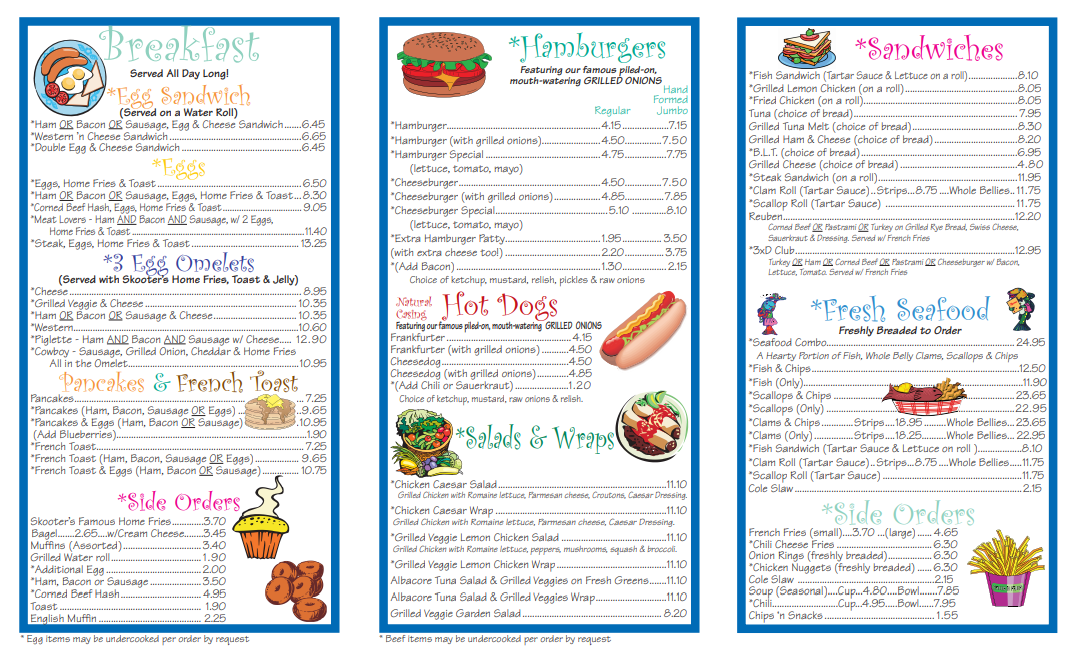 Breakfast
Served All Day Long!
*Egg Sandwich
(Served on a Water Roll)
*Ham OR Bacon OR Sausage, Egg & Cheese Sandwich......6.45
*Western 'n Cheese Sandwich......6.65
*Double Egg & Cheese Sandwich......6.45
*Eggs
*Eggs, Home Fries & Toast......6.50
*Ham OR Bacon OR Sausage, Eggs, Home Fries & Toast...8.30
*Corned Beef Hash, Eggs, Home Fries & Toast......9.05
*Meat Lovers - Ham AND Bacon AND Sausage, w/ 2 Eggs,
Home Fries & Toast......11.40
*Steak, Eggs, Home Fries & Toast......13.25
*3 Egg Omelets
(Served with Skooter's Home Fries, Toast & Jelly)
*Cheese......8.95
*Grilled Veggie & Cheese......10.35
*Ham OR Bacon OR Sausage & Cheese......10.35
*Western......10.60
*Piglette - Ham AND Bacon AND Sausage w/ Cheese..... 12.90
*Cowboy - Sausage, Grilled Onion, Cheddar & Home Fries
All in the Omelet......10.95
Pancakes & French Toast
Pancakes......7.25
*Pancakes (Ham, Bacon, Sausage OR Eggs) ...9.65
*Pancakes & Eggs (Ham, Bacon OR Sausage) .10.95
(Add Blueberries)......1.90
*French Toast......7.25
*French Toast (Ham, Bacon, Sausage OR Eggs)......9.65
*French Toast & Eggs (Ham, Bacon OR Sausage)......10.75
*Side Orders
Skooter's Famous Home Fries......3.70
Bagel.......2.65....w/Cream Cheese.......3.45
Muffins (Assorted)......3.40
Grilled Water roll......1.90
*Additional Egg......2.00
*Ham, Bacon or Sausage......3.50
*Corned Beef Hash......4.95
Toast......1.90
English Muffin......2.25
* Egg Items may be undercooked per order by request
*Hamburgers
Featuring our famous piled-on,
mouth-watering GRILLED ONIONS
Regular
Hand
Formed
Jumbo
*Hamburger......4.15......7.15
*Hamburger (with grilled onions)......4.50......7.50
*Hamburger Special......4.75......7.75
(lettuce, tomato, mayo)
*Cheeseburger......4.50......7.50
*Cheeseburger (with grilled onions)......4.85......7.85
*Cheeseburger Special......5.10......8.10
(lettuce, tomato, mayo)
*Extra Hamburger Patty......1.95......3.50
(with extra cheese too!)......2.20......3.75
*(Add Bacon)......1.30......2.15
Choice of ketchup, mustard, relish, pickles & raw onions
Natural
Casing
Hot Dogs
Featuring our famous piled-on, mouth-watering GRILLED ONIONS
Frankfurter......4.15
Frankfurter (with grilled onions)......4.50
Cheesedog......4.50
Cheesedog (with grilled onions)......4.85
*(Add Chili or Sauerkraut)......1.20
Choice of ketchup, mustard, raw onions & relish.
*Salads & Wraps
*Chicken Caesar Salad......11.10
Grilled Chicken with Romaine lettuce, Parmesan cheese, Croutons, Caesar Dressing.
*Chicken Caesar Wrap......11.10
Grilled Chicken with Romaine lettuce, Parmesan cheese, Caesar Dressing.
*Grilled Veggie Lemon Chicken Salad......11.10
Grilled Chicken with Romaine lettuce, peppers, mushrooms, squash & broccoli.
*Grilled Veggie Lemon Chicken Wrap......11.10
Albacore Tuna Salad & Grilled Veggies on Fresh Greens......11.10
Albacore Tuna Salad & Grilled Veggies Wrap......11.10
Grilled Veggie Garden Salad......8.20
* Beef Items may be undercooked per order by request
*Sandwiches
*Fish Sandwich (Tartar Sauce & Lettuce on a roll)......8.10
*Grilled Lemon Chicken (on a roll)......8.05
*Fried Chicken (on a roll)......8.05
Tuna (choice of bread)......7.95
Grilled Tuna Melt (choice of bread)......8.30
Grilled Ham & Cheese (choice of bread)......8.20
*B.L.T. (choice of bread)......6.95
Grilled Cheese (choice of bread)......4.80
*Steak Sandwich (on a roll)......11.95
*Clam Roll (Tartar Sauce)..Strips...8.75 ....Whole Bellies.. 11.75
*Scallop Roll (Tartar Sauce)......11.75
Reuben......12.20
Corned Beef OR Pastrami OR Turkey on Grilled Rye Bread, Swiss Cheese,
Sauerkraut & Dressing. Served w/ French Fries
*3xD Club......12.95
Turkey OR Ham OR Corned Beef OR Pastrami OR Cheeseburger w/ Bacon,
Lettuce, Tomato. Served w/ French Fries
*Fresh Seafood
Freshly Breaded to Order
*Seafood Combo......24.95
A Hearty Portion of Fish, Whole Belly Clams, Scallops & Chips
*Fish & Chips......12.50
*Fish (Only)......11.90
*Scallops & Chips......23.65
*Scallops (Only)......22.95
*Clams & Chips......Strips....18.95......Whole Bellies...23.65
*Clams (Only)......Strips....18.25......Whole Bellies... 22.95
*Fish Sandwich (Tartar Sauce & Lettuce on roll )......8.10
*Clam Roll (Tartar Sauce)..Strips...8.75 ....Whole Bellies.....11.75
*Scallop Roll (Tartar Sauce)......11.75
Cole Slaw......2.15
*Side Orders
French Fries (small)....3.70 ...(large)...... 4.65
*Chili Cheese Fries......6.30
Onion Rings (freshly breaded)......6.30
*Chicken Nuggets (freshly breaded)......6.30
Cole Slaw......2.15
Soup (Seasonal)....Cup...4.80....Bowl.......7.85
*Chili......Cup...4.95.....Bowl.....7.95
Chips 'n Snacks......1.55